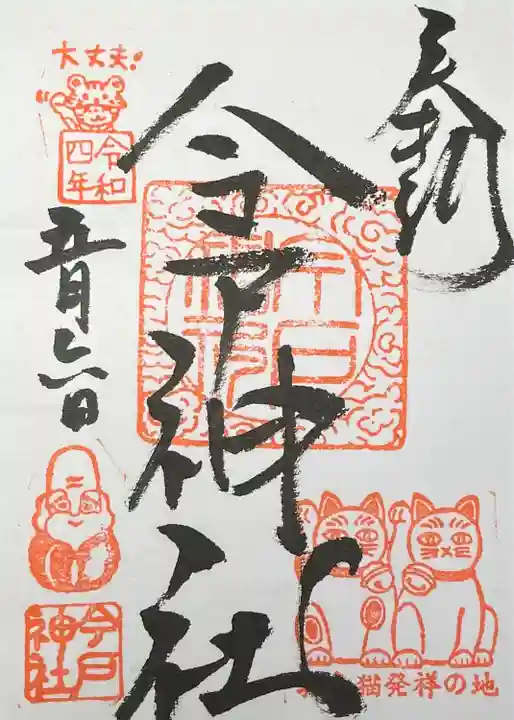 奉拝
今戸神社
招き猫発祥の地
大丈夫!
令和
四年
五月六日
今戸
神社